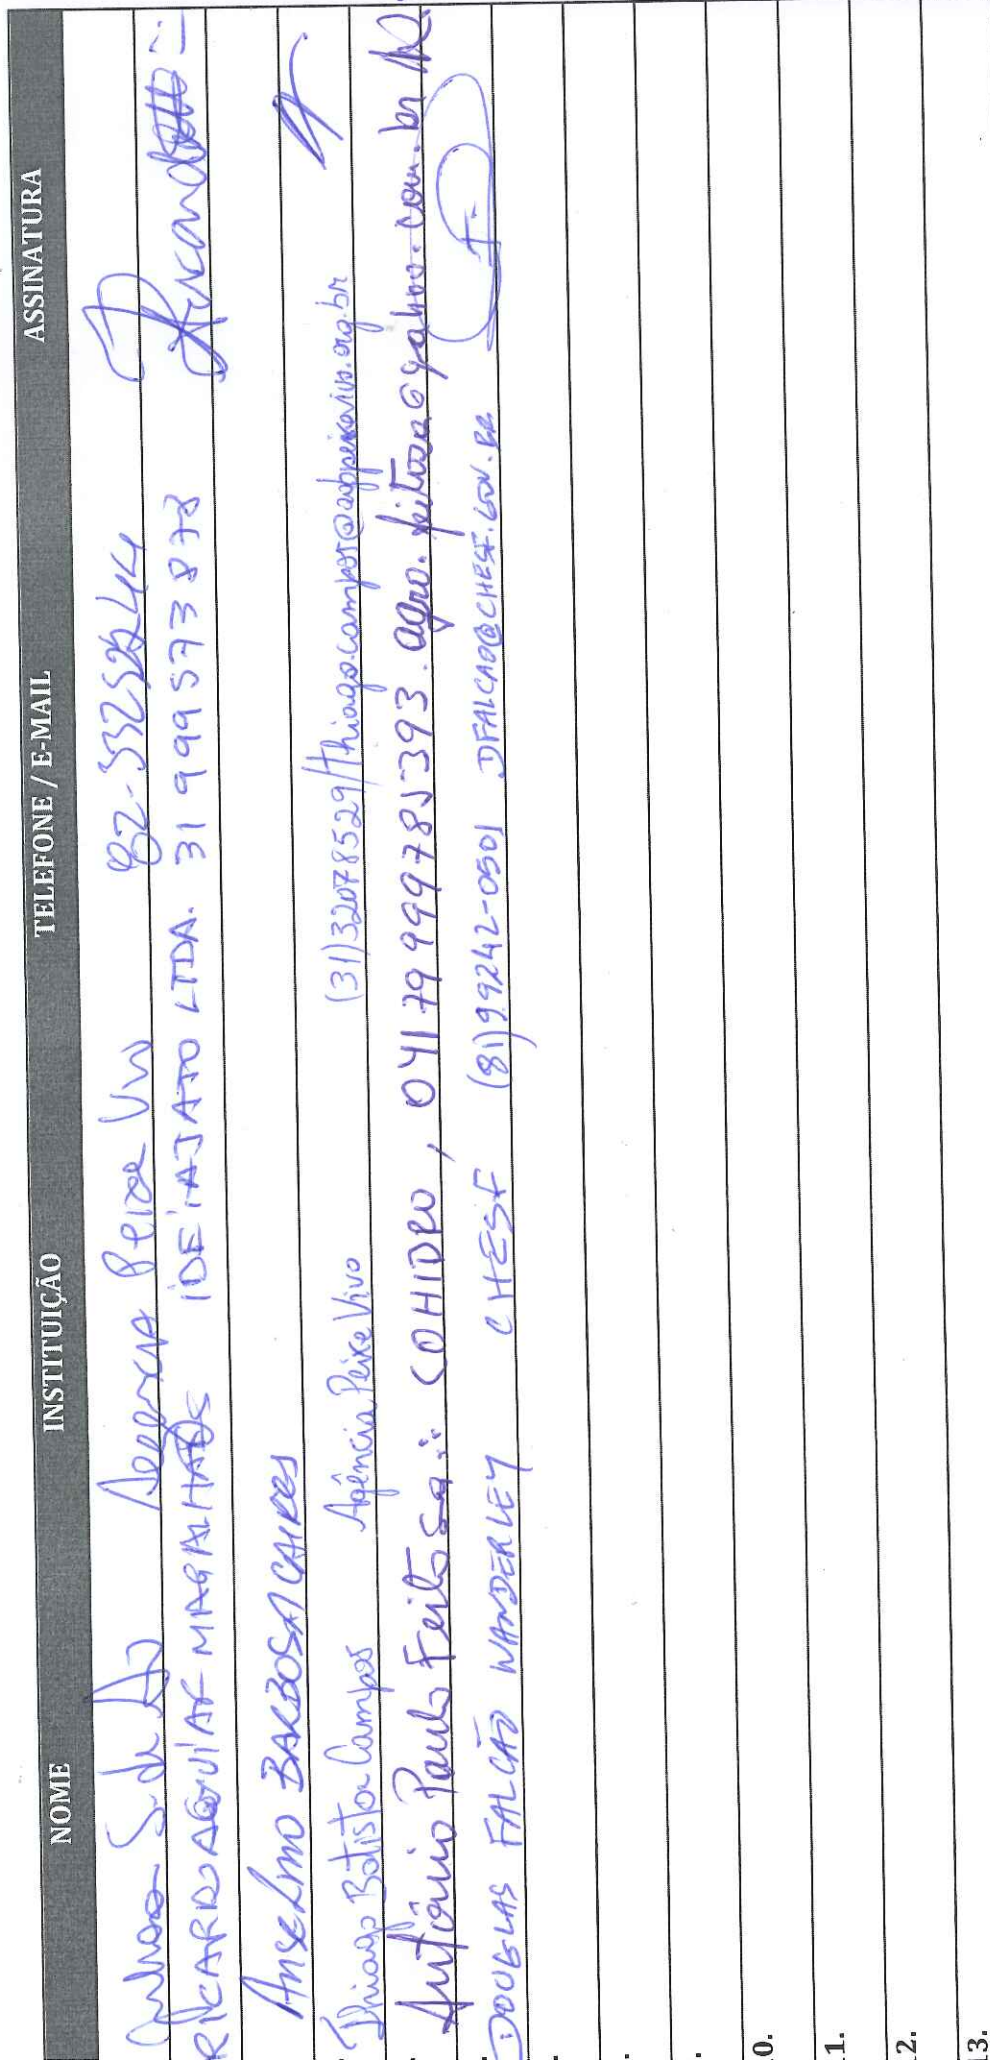 NOME INSTITUIÇÃO TELEFONE / E-MAIL ASSINATURA
S. de Peixe Vivo 82-
RICARDO AGUIAR MAGALHÃES IDÉIAJATO LTDA. 31 999573878
ANSELMO BARBOSA CAIRES
Thiago Batista Campos Agência Peixe Vivo (31)32078529/thiago.campos@agbpeixevivo.org.br
Antônio Paulo Feitosa COHIDRO, 041 79 999785393. agro.feitosa@yahoo.com.br
DOUGLAS FALCÃO WANDERLEY CHESF (81)99242-0501 DFALCAO@CHESF.GOV.BR
0.
1.
2.
13.